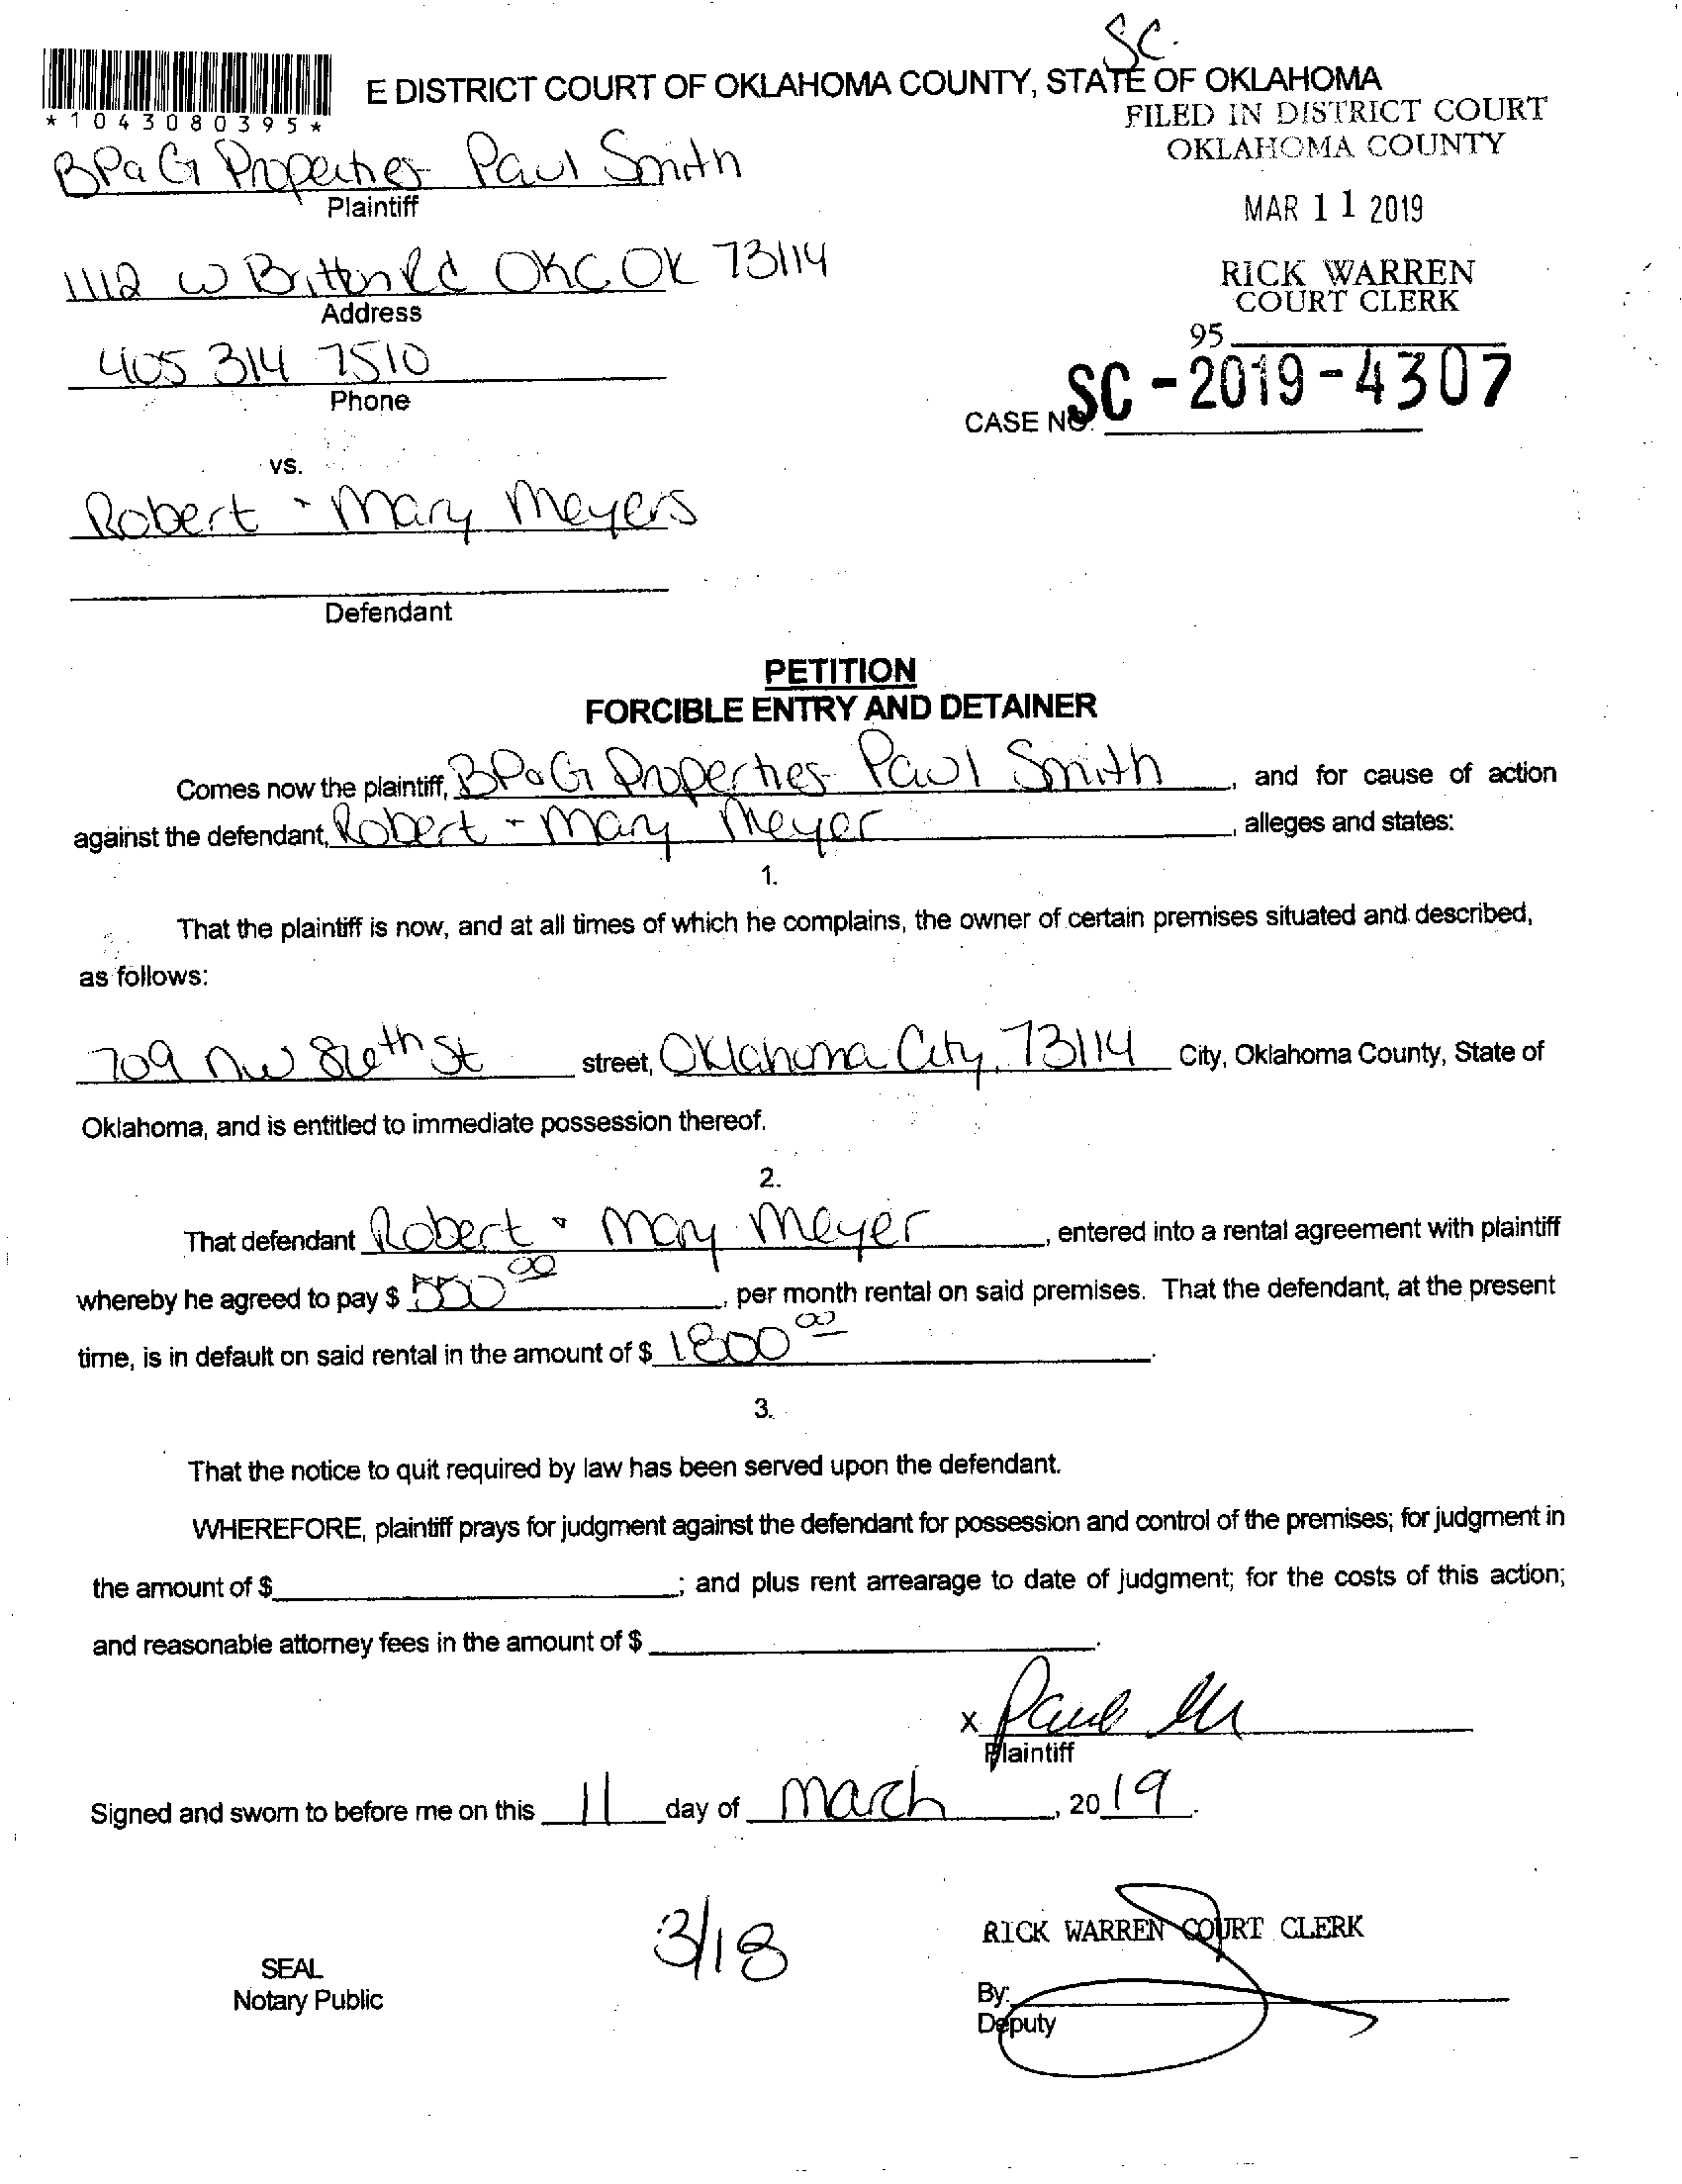 SC.
E DISTRICT COURT OF OKLAHOMA COUNTY, STATE OF OKLAHOMA
*1043080395*
FILED IN DISTRICT COURT
OKLAHOMA COUNTY
BPaG Properties Paul Smith
Plaintiff
MAR 11 2019
1112 W Britton Rd OKC OK 73114
Address
RICK WARREN
COURT CLERK
95
405 314 7510
Phone
CASE NO. SC-2019-4307
vs.
Robert - Mary Meyers
Defendant
PETITION
FORCIBLE ENTRY AND DETAINER
Comes now the plaintiff, BPaG Properties Paul Smith, and for cause of action
against the defendant, Robert - Mary Meyer, alleges and states:
1.
That the plaintiff is now, and at all times of which he complains, the owner of certain premises situated and described,
as follows:
709 NW 86th St street, Oklahoma City, 73114 City, Oklahoma County, State of
Oklahoma, and is entitled to immediate possession thereof.
2.
That defendant Robert - Mary Meyer, entered into a rental agreement with plaintiff
whereby he agreed to pay $ 550 00, per month rental on said premises. That the defendant, at the present
time, is in default on said rental in the amount of $ 1800 00.
3.
That the notice to quit required by law has been served upon the defendant.
WHEREFORE, plaintiff prays for judgment against the defendant for possession and control of the premises; for judgment in
the amount of $ ; and plus rent arrearage to date of judgment; for the costs of this action;
and reasonable attorney fees in the amount of $ .
X Paul
Plaintiff
Signed and sworn to before me on this 11 day of March, 2019.
3/18
RICK WARREN COURT CLERK
SEAL
Notary Public
By:
Deputy